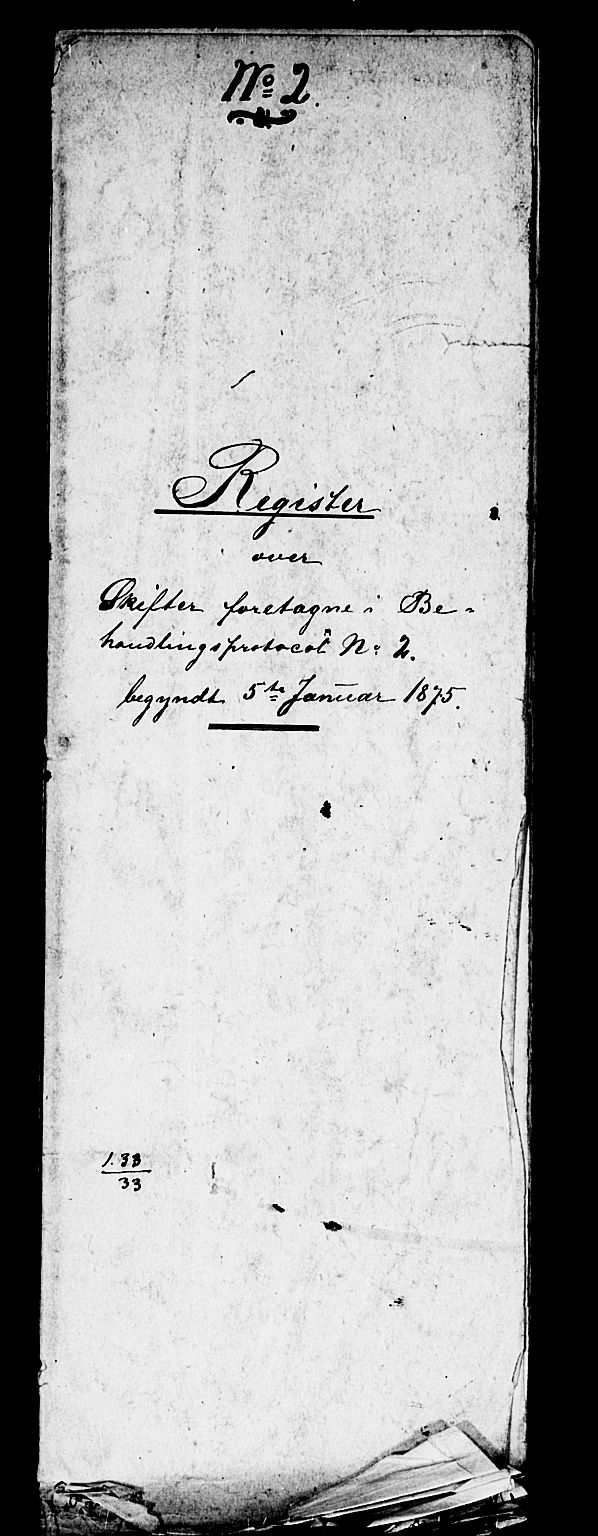 No 2.
Register
over
Skifter foretagne i Be-
handlingsprotocol No 2.
begyndt 5te Januar 1875.
1.33
33